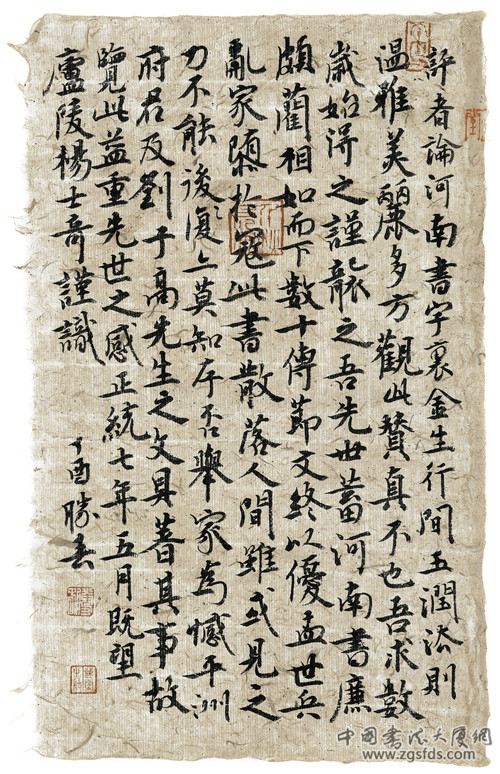 評者論河南書字裏金生行間玉潤法則
温雅美麗多方觀此贊真不也吾求數
歲始得之謹識之吾先世蓄河南書廉
頗藺相如而下數十傳節文終以優孟世兵
亂家隳於寇此書散落人間雖或見之
力不能後復之莫知存否舉家為憾平洲
府君及劉子高先生之文具著其事故
覽此益重先世之感正統七年五月既望
廬陵楊士奇謹識
丁酉勝春
中国书法大厦网
www.zgsfds.com